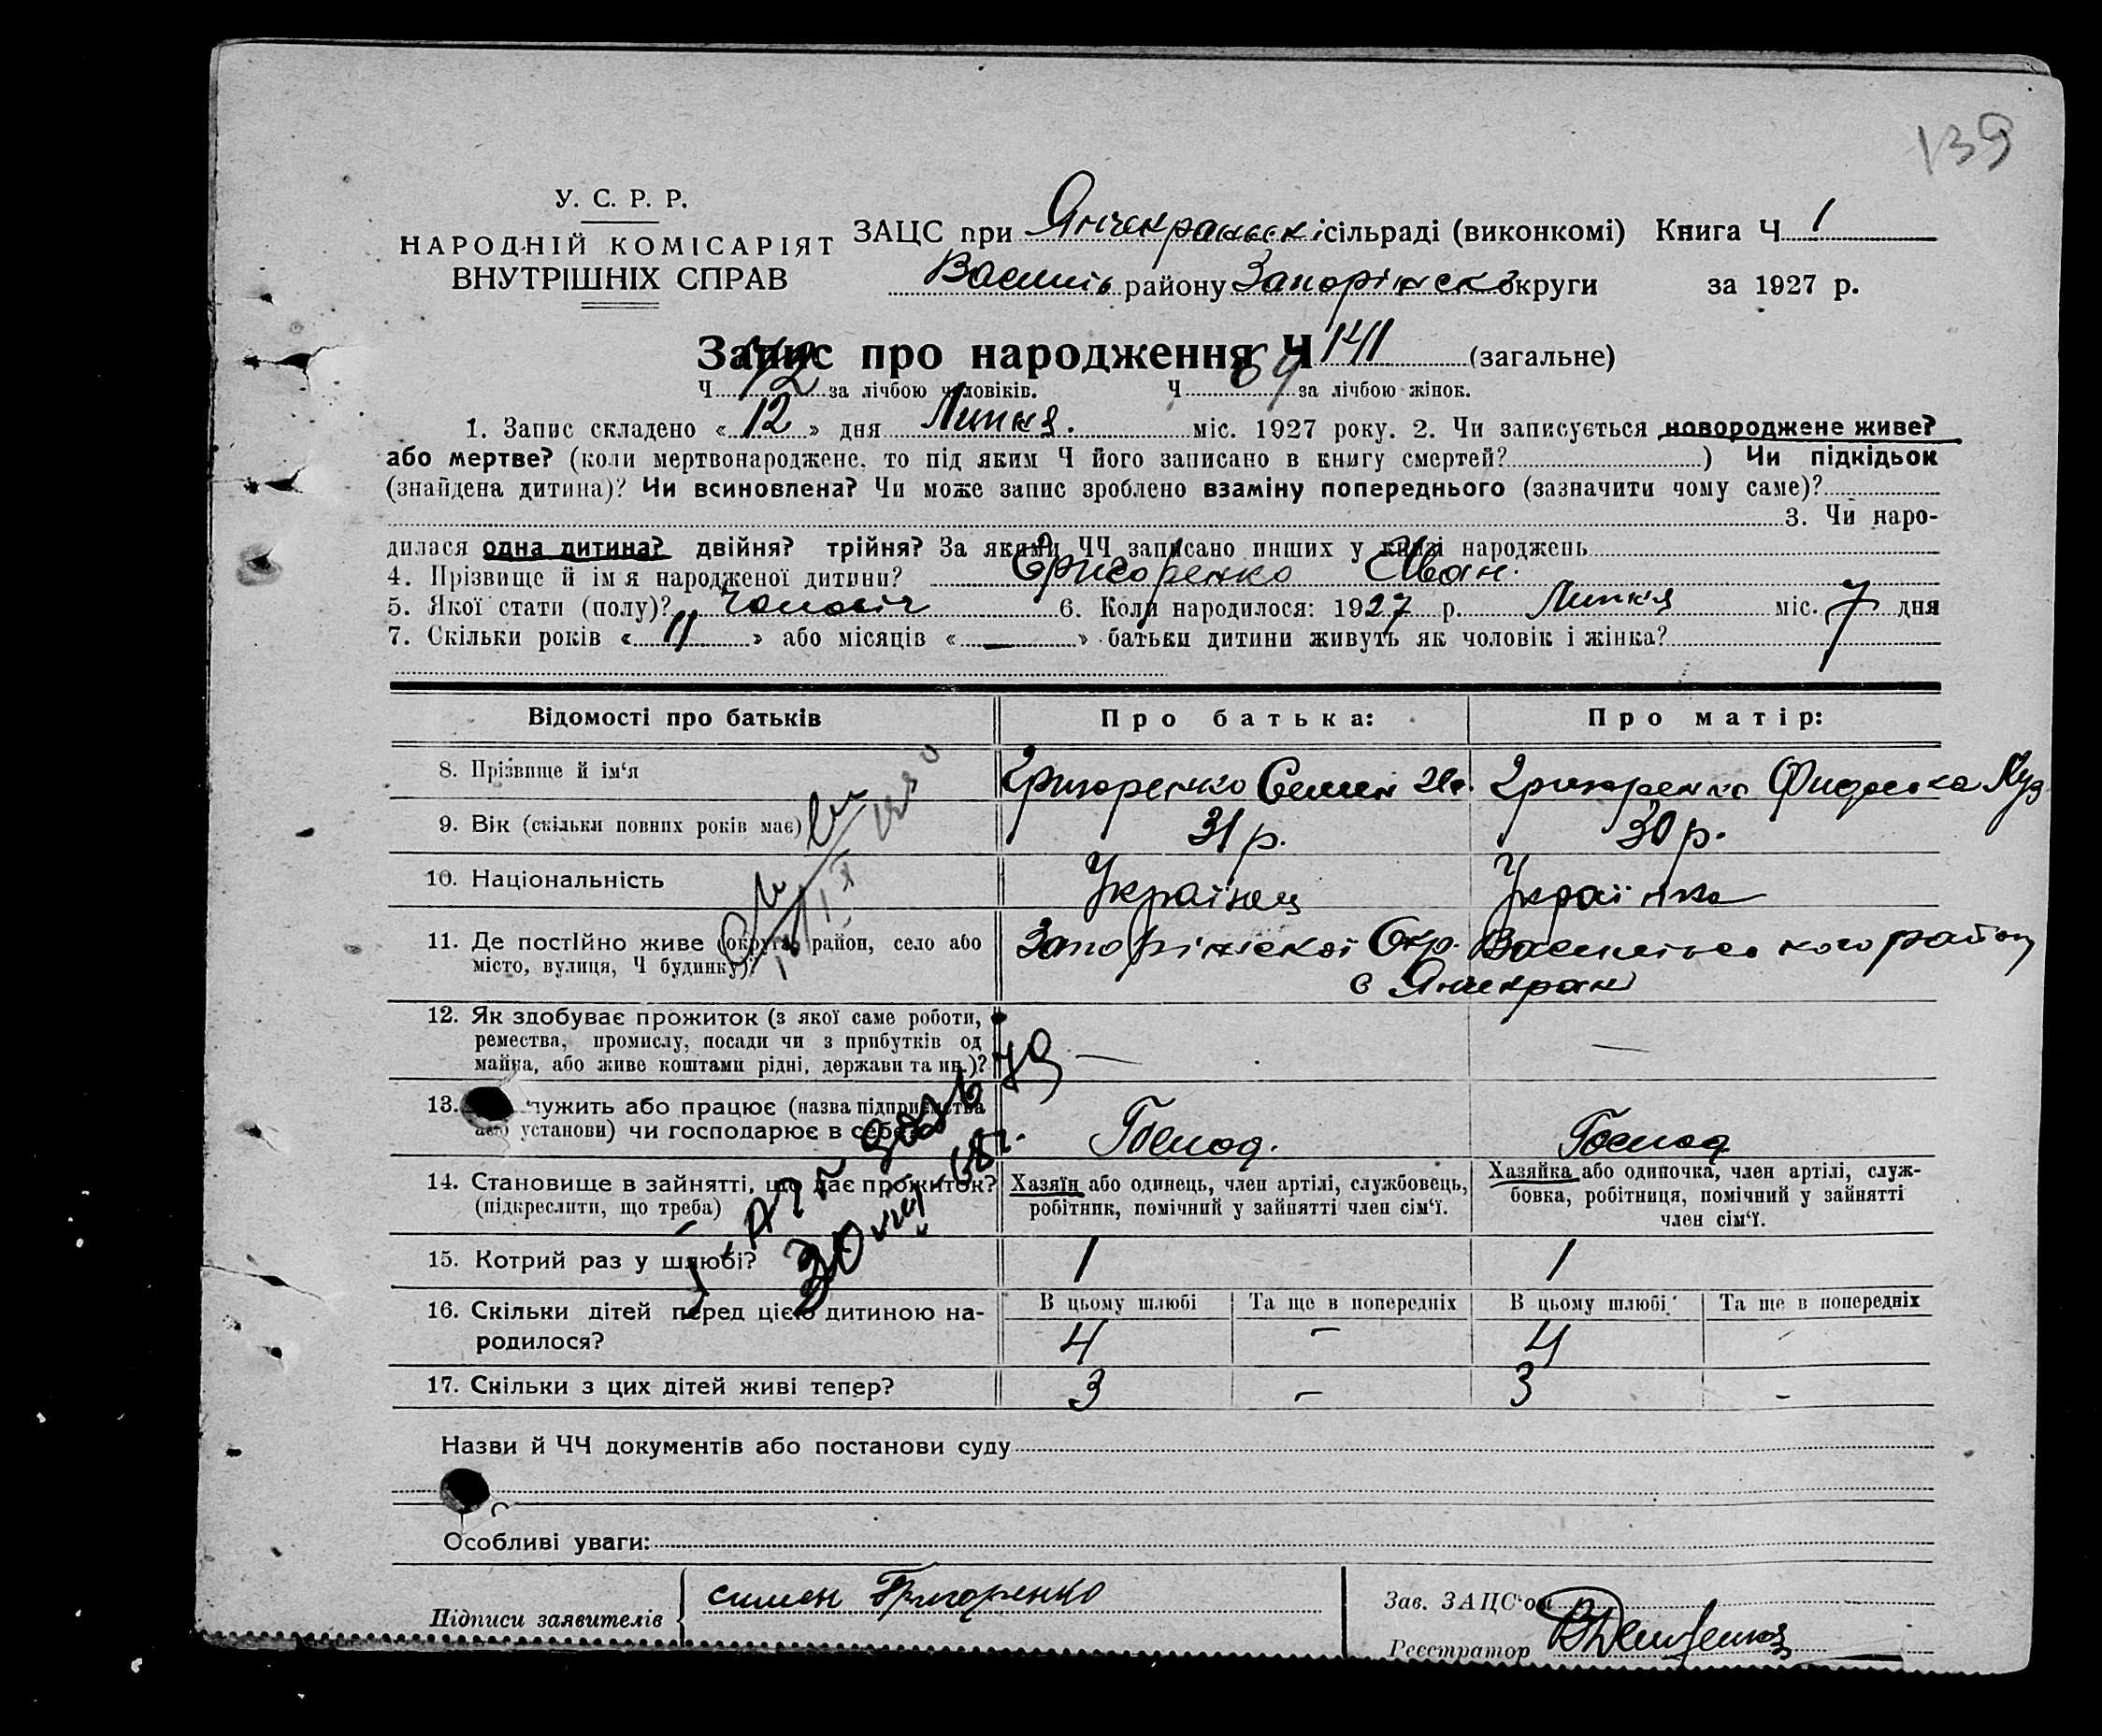 139
У. С. Р. Р.
НАРОДНІЙ КОМІСАРІЯТ
ВНУТРІШНІХ СПРАВ
ЗАЦС при Янчекракській сільраді (виконкомі) Книга Ч 1
Василів району Запоріжськ округи за 1927 р.
Запис про народження Ч 141 (загальне)
Ч 72 за лічбою чоловіків. Ч 69 за лічбою жінок.
1. Запис складено « 12 » дня Липня. міс. 1927 року. 2. Чи записується новороджене живе?
або мертве? (коли мертвонароджене, то під яким Ч його записано в книгу смертей? ) Чи підкідьок
(знайдена дитина)? Чи всиновлена? Чи може запис зроблено взаміну попереднього (зазначити чому саме)?
3. Чи наро-
дилася одна дитина? двійня? трійня? За якими ЧЧ записано инших у книзі народжень
4. Прізвище й ім‘я народженої дитини? Григоренко Іван.
5. Якої стати (полу)? Чоловіч 6. Коли народилося: 1927 р. Липня міс. 7 дня
7. Скільки років « 11 » або місяців « — » батьки дитини живуть як чоловік і жінка?
Відомості про батьків Про батька: Про матір:
8. Прізвище й ім‘я Григоренко Семен Григоренко
9. Вік (скільки повних років має) 31 р. 30 р.
10. Національність Українец Українка
11. Де постійно живе (округа, район, село або Запоріжскої Окр. Василівського району
місто, вулиця, Ч будинку)? с Янчекрак
12. Як здобуває прожиток (з якої саме роботи,
ремества, промислу, посади чи з прибутків од — —
майна, або живе коштами рідні, держави та ин.)?
13. служить або працює (назва підприємства
або установи) чи господарює в себе? Господ. Господ
14. Становище в зайнятті, що дає прожиток? Хазяїн або одинець, член артілі, службовець, Хазяйка або одиночка, член артілі, служ-
(підкреслити, що треба) робітник, помічний у зайнятті член сім‘ї. бовка, робітниця, помічний у зайнятті
член сім‘ї.
15. Котрий раз у шлюбі? 1 1
16. Скільки дітей перед цією дитиною на- В цьому шлюбі Та ще в попередніх В цьому шлюбі Та ще в попередніх
родилося? 4 – 4 –
17. Скільки з цих дітей живі тепер? 3 – 3 –
Назви й ЧЧ документів або постанови суду
Особливі уваги:
Підписи заявителів симен Григоренко Зав. ЗАЦС‘ом
Реєстратор